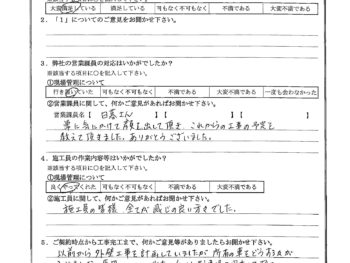 大変満足している 満足している 可もなく不可もなく 不満である 大変不満である
2．「1」についてのご意見をお聞かせ下さい。
3．弊社の営業職員の対応はいかがでしたか？
※該当する項目に○を記入して下さい。
①現場管理について
行き届いていた 可もなく不可もなく 不満である 大変不満である 一度も会わなかった
②営業職員に関して、何かご意見があればお聞かせ下さい。
営業職員名【 日暮さん 】【 】【 】
常に気にかけて顔を出して頂き、これからの工事の予定を
教えて頂きました。ありがとうございました。
4．施工員の作業内容等はいかがでしたか？
※該当する項目に○を記入して下さい。
①現場管理について
良くやってくれた 可もなく不可もなく 不満である 大変不満である
②施工員に関して、何かご意見があればお聞かせ下さい。
施工員の皆様 全てが感じの良い方でした。
5．ご契約時点から工事完工まで、何かご意見等がありましたらお聞かせ下さい。
以前から外壁工事を計画していましたが